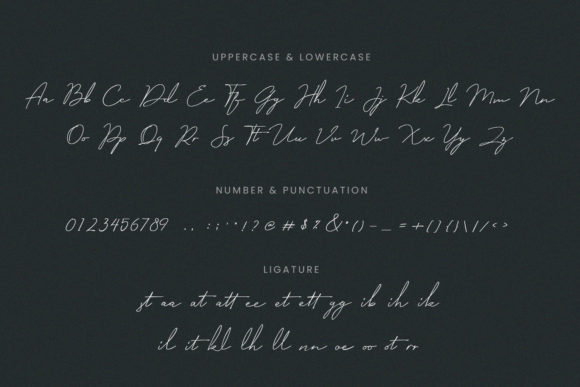 UPPERCASE & LOWERCASE
Aa Bb Cc Dd Ee Ff Gg Hh Ii Jj Kk Ll Mm Nn
Oo Pp Qq Rr Ss Tt Uu Vv Ww Xx Yy Zz
NUMBER & PUNCTUATION
0123456789 . , : ; ' " ! ? @ # $ % & * ( ) - _ = + [ ] { } \ | / < >
LIGATURE
st aa at att ee et ett gg ib ih ik
il it kl lh ll nn oe oo ot rr